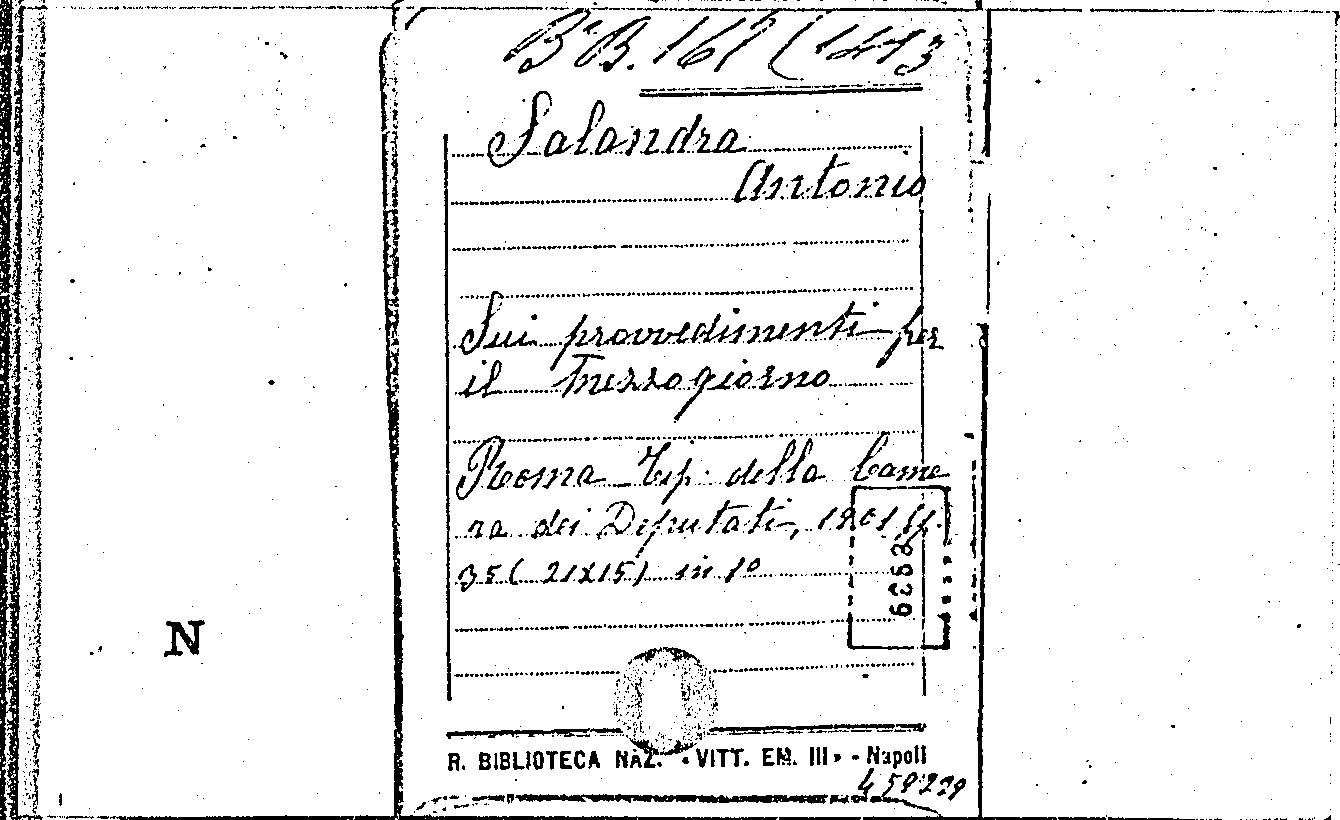 Bª B. 167 (1413
Salandra
Antonio
Sui provvedimenti per
il Mezzogiorno
Roma Tip. della Came
ra dei Deputati, 1901 ff.
35 ( 21X15) in 1º
N
R. BIBLIOTECA NAZ. «VITT. EM. III» - Napoli